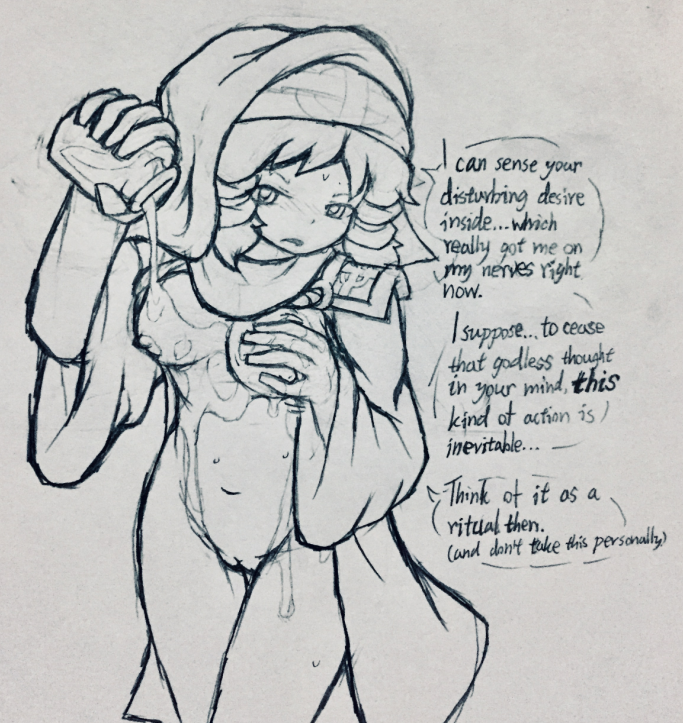 I can sense your
disturbing desire
inside...which
really got me on
my nerves right
now.
I suppose... to cease
that godless thought
in your mind, this
kind of action is
inevitable...
Think of it as a
ritual then.
(and don't take this personally)